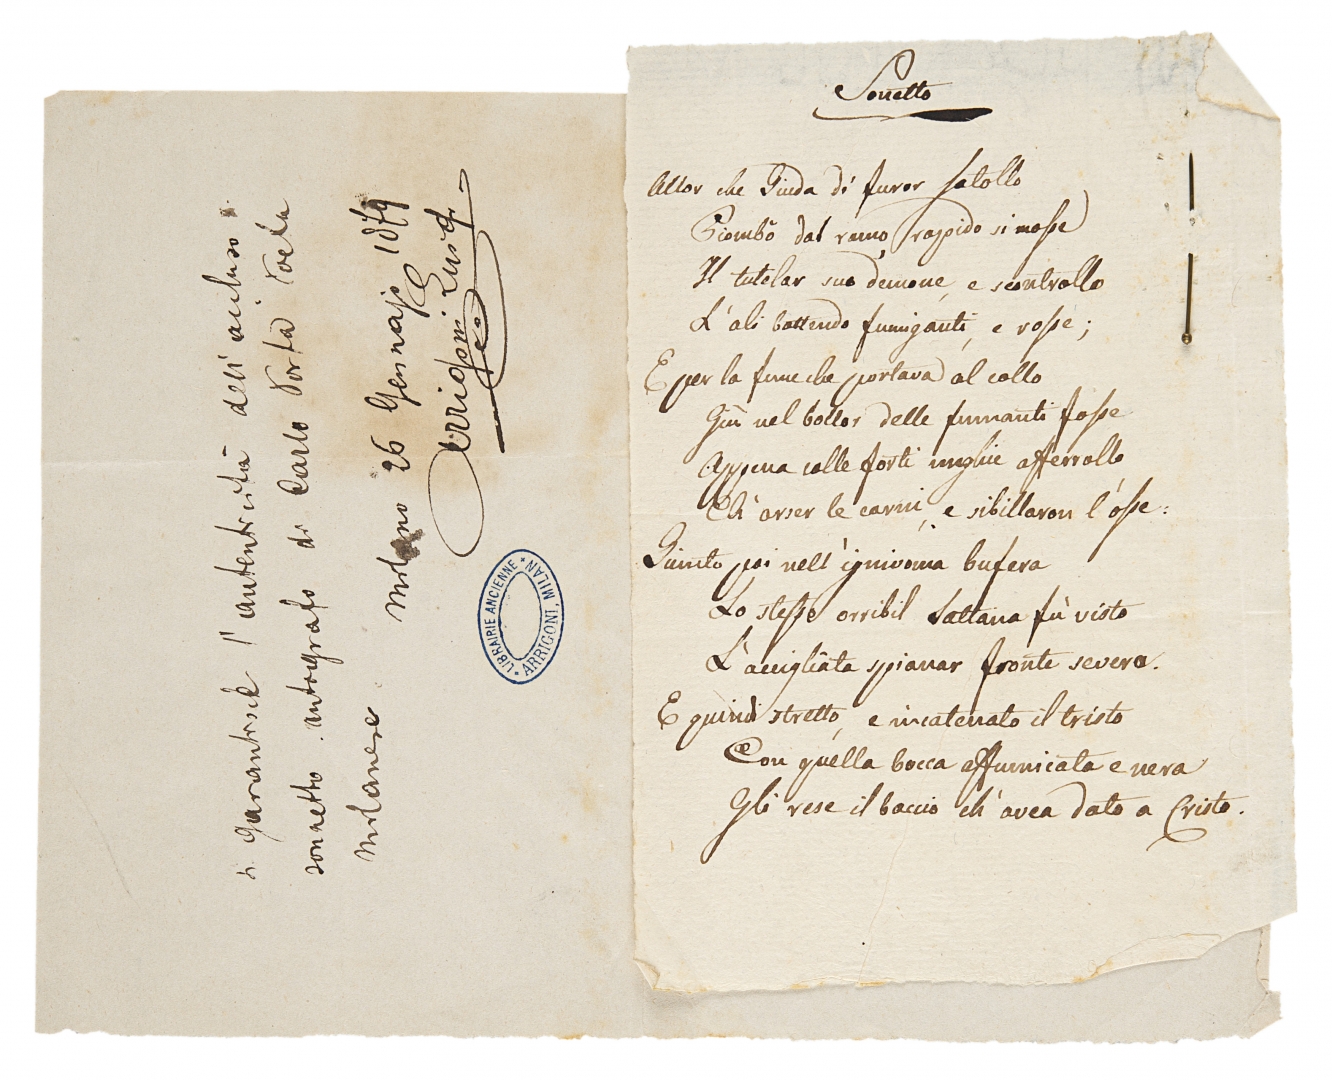 Si garantisce l'autenticità dell'accluso
sonnetto autografo di Carlo Porta Poeta
Milanese Milano 26 Gennajo 1879
Arrigoni Luigi
LIBRAIRIE ANCIENNE
ARRIGONI, MILAN
Sonetto
Allor che Giuda di furor satollo
Piombò dal ramo, rapido si mosse
Il tutelar suo demone, e scontrollo
L'ali battendo fumiganti, e rosse;
E per la fune che portava al collo
Giù nel bollor delle fumanti fosse
Appena colle forti unghie afferrollo
Ch'arser le carni, e sibillaron l'osse:
Giunto poi nell'ignivoma bufera
Lo stesso orribil Sattana fù visto
L'accigliata spianar fronte severa.
E quindi stretto, e incatenato il tristo
Con quella bocca affumicata e nera
Gli rese il baccio ch'avea dato a Cristo.